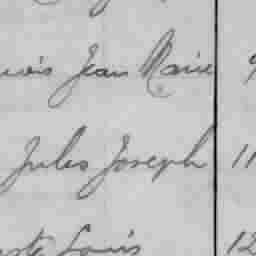 Jean Marie 9
Jules Joseph 11
Louis 12